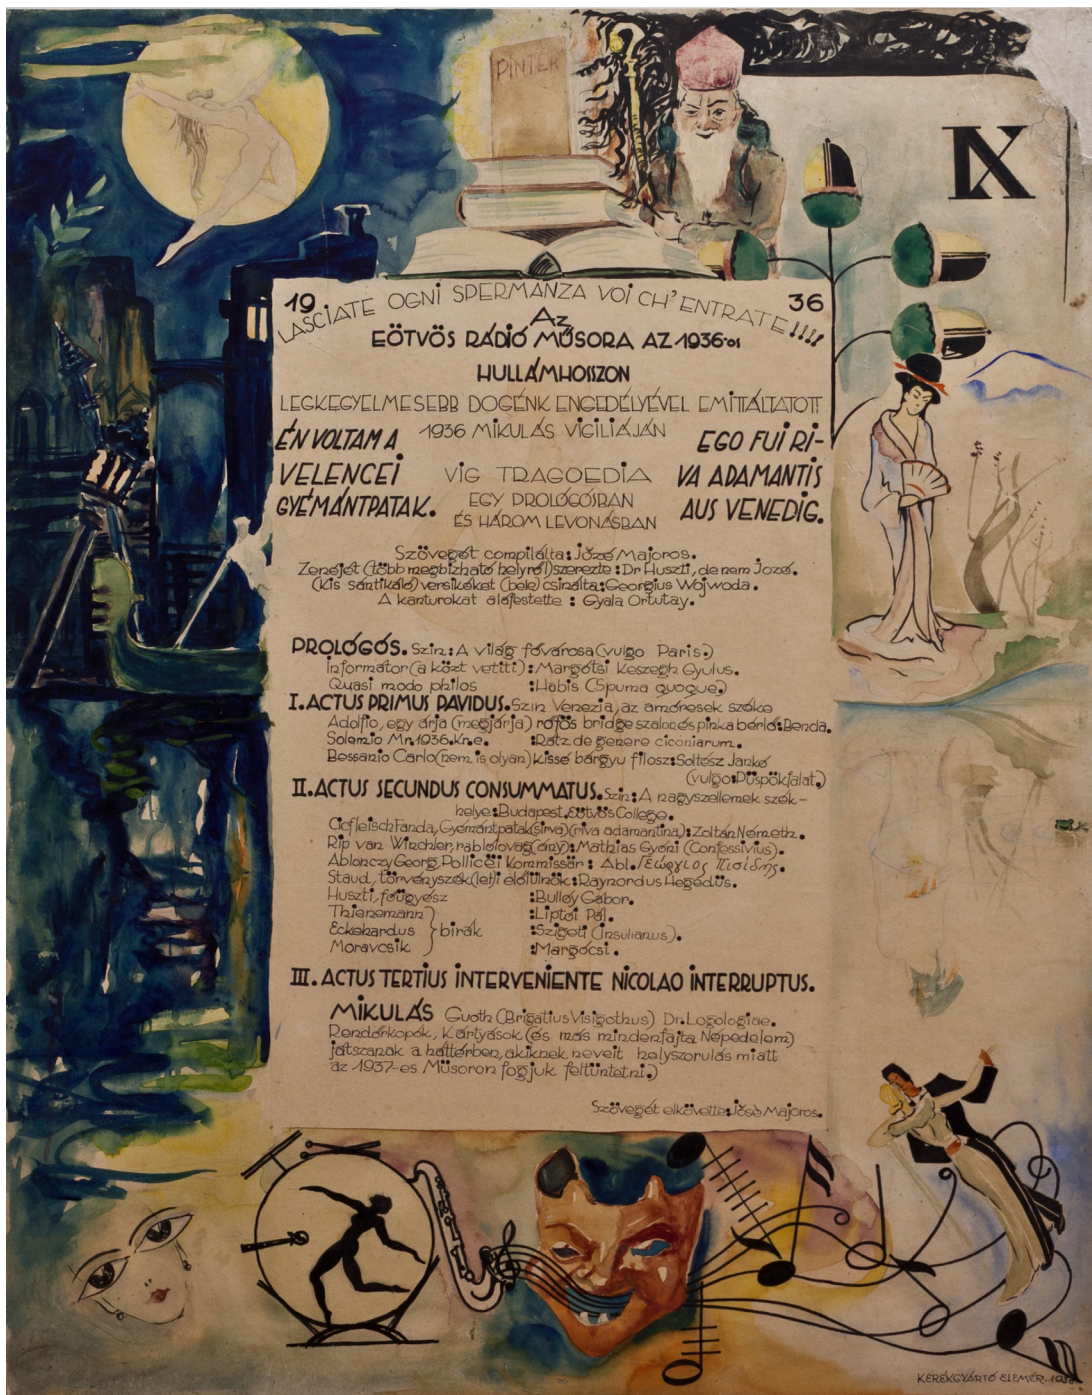 PINTÉR
IX
19 36
LASCIATE OGNI SPERMANZA VOI CH'ENTRATE!!!!
AZ
EÖTVÖS RÁDIÓ MŰSORA AZ 1936-os
HULLÁMHOSSZON
LEGKEGYELMESEBB DOGÉNK ENGEDÉLYÉVEL EMITTÁLTATOTT
1936 MIKULÁS VIGILIÁJÁN
ÉN VOLTAM A
VELENCEI
GYÉMÁNTPATAK.
VIG TRAGOEDIA
EGY PROLÓGÓSBAN
ÉS HÁROM LEVONÁSBAN
EGO FUI RI-
VA ADAMANTIS
AUS VENEDIG.
Szövegét compilálta: Józé Majoros.
Zenéjét (több megbízható helyről) szerezte: Dr Huszti, de nem Jozé.
(Kis sántikáló) versikéket (bele) csinálta: Georgius Wojwoda.
A kanturokat aláfestette : Gyala Ortutay.
PROLÓGÓS. Szin: A világ fővárosa (vulgo Paris.)
Informátor (a közt vetíti) : Margótai Keszegh Gyulus.
Quasi modo philos : Habis (Spuma quoque.)
I. ACTUS PRIMUS PAVIDUS. Szin Venezia, az amóresek széke
Adolfio, egy árja (megjárja) röfös bridge szaloc és pinka bérlő: Benda.
Solemio Mr. 1936. Kr.e. : Rátz de genere ciconiarum.
Bessanio Carlo (nem is olyan) kissé bárgyu filosz: Soltész Jankó
(vulgo: Püspökfalat.)
II. ACTUS SECUNDUS CONSUMMATUS. Szin: A nagyszellemek szék-
helye: Budapest. Eötvös College.
Cicfleisch Fanda, Gyémántpatak (sirva) (riva adamantina): Zoltán Németh.
Rip van Winchler, rablólovag (ány): Mathias Gyóni (Confessivius).
Ablonczy Georg, Pollicēi Kommissär : Abl. Γεώργιος Πισίδης.
Staud, törvényszék (let)i előlülnök: Raynordus Hegedüs.
Huszti, főügyész : Bulley Gábor.
Thienemann : Liptói Pál.
Eckehardus } birák : Szigeti (Insulianus).
Moravcsik : Margócsi.
III. ACTUS TERTIUS INTERVENIENTE NICOLAO INTERRUPTUS.
MIKULÁS Guoth (Brigatius Visigothus) Dr. Logologiae.
Rendőrkopók, Kártyások (és más mindenfajta Népedelem)
játszanak a háttérben, akiknek neveit helyszorulás miatt
az 1937-es Műsoron fogjuk feltüntetni.)
Szövegét elkövette: Jósè Majoros.
KERÉKGYÁRTÓ ELEMÉR.